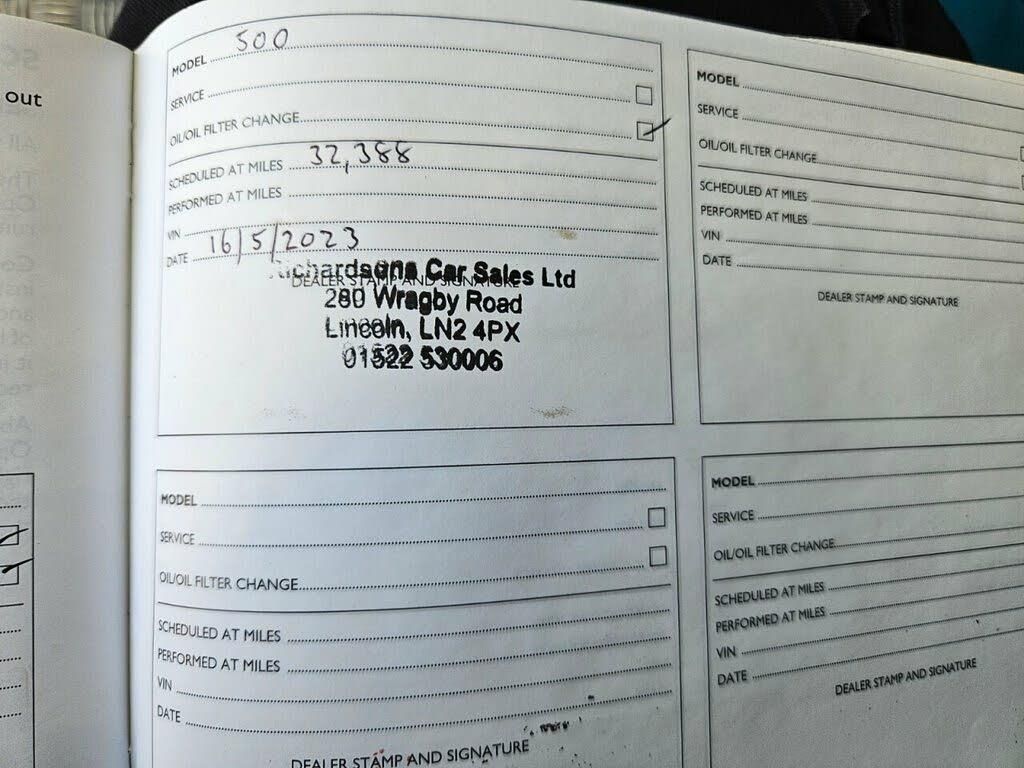 out
MODEL 500
SERVICE
OIL/OIL FILTER CHANGE
SCHEDULED AT MILES 32,388
PERFORMED AT MILES
VIN
DATE 16/5/2023
DEALER STAMP AND SIGNATURE
Richardsons Car Sales Ltd
280 Wragby Road
Lincoln, LN2 4PX
01522 530006
MODEL
SERVICE
OIL/OIL FILTER CHANGE
SCHEDULED AT MILES
PERFORMED AT MILES
VIN
DATE
DEALER STAMP AND SIGNATURE
MODEL
SERVICE
OIL/OIL FILTER CHANGE
SCHEDULED AT MILES
PERFORMED AT MILES
VIN
DATE
DEALER STAMP AND SIGNATURE
MODEL
SERVICE
OIL/OIL FILTER CHANGE
SCHEDULED AT MILES
PERFORMED AT MILES
VIN
DATE
DEALER STAMP AND SIGNATURE